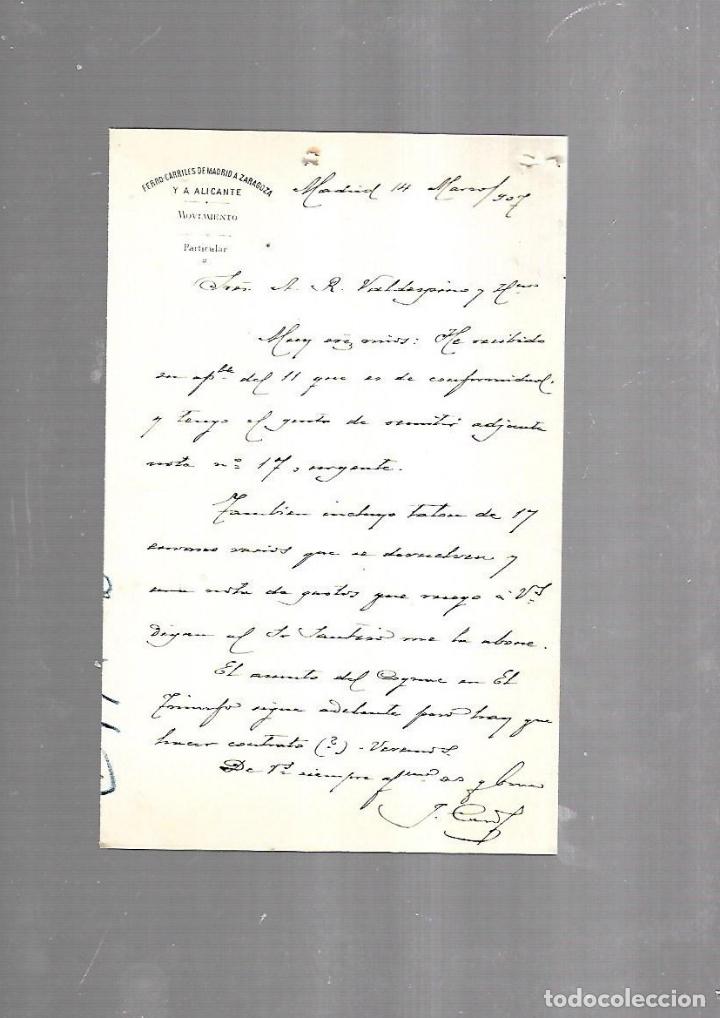 FERRO-CARRILES DE MADRID A ZARAGOZA
Y A ALICANTE
MOVIMIENTO
Particular
Madrid 14 Marzo/907
Sres. A. R. Valdespino y Hnos
Muy sres mios: He recibido
su apble del 11 que es de conformidad.
y tengo el gusto de remitir adjunta
nota nº 17, urgente.
Tambien incluyo talon de 17
envases vacios que se devuelven y
una nota de gastos que ruego á Vs
digan al Sr me la abone.
El asunto del Cognac en El
Triunfo sigue adelante pero hay que
hacer contrato (?) - Veremos.
De Vs siempre afmo ss y
J.
todocoleccion